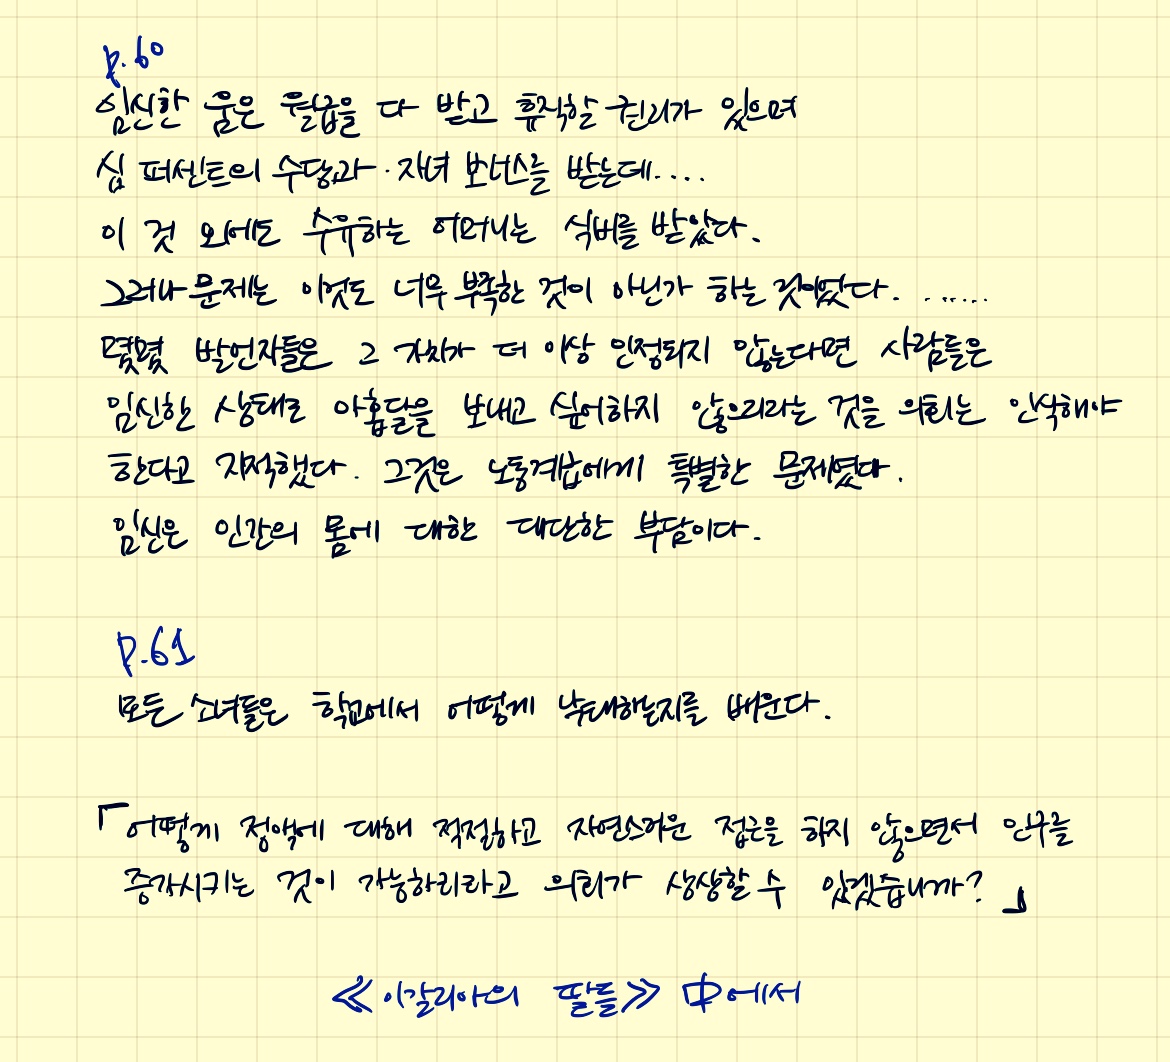 p.60
임신한 움은 월급을 다 받고 휴직할 권리가 있으며
십 퍼센트의 수당과 자녀 보너스를 받는데....
이 것 외에도 수유하는 어머니는 식비를 받았다.
그러나 문제는 이것도 너무 부족한 것이 아닌가 하는 것이었다. ......
몇몇 발언자들은 그 가치가 더 이상 인정되지 않는다면 사람들은
임신한 상태로 아홉달을 보내고 싶어하지 않으리라는 것을 의회는 인식해야
한다고 지적했다. 그것은 노동계급에게 특별한 문제였다.
임신은 인간의 몸에 대한 대단한 부담이다.
p.61
모든 소녀들은 학교에서 어떻게 낙태하는지를 배운다.
「어떻게 정액에 대해 적절하고 자연스러운 접근을 하지 않으면서 인구를
증가시키는 것이 가능하리라고 의회가 상상할 수 있겠습니까?」
≪이갈리아의 딸들≫ 中에서